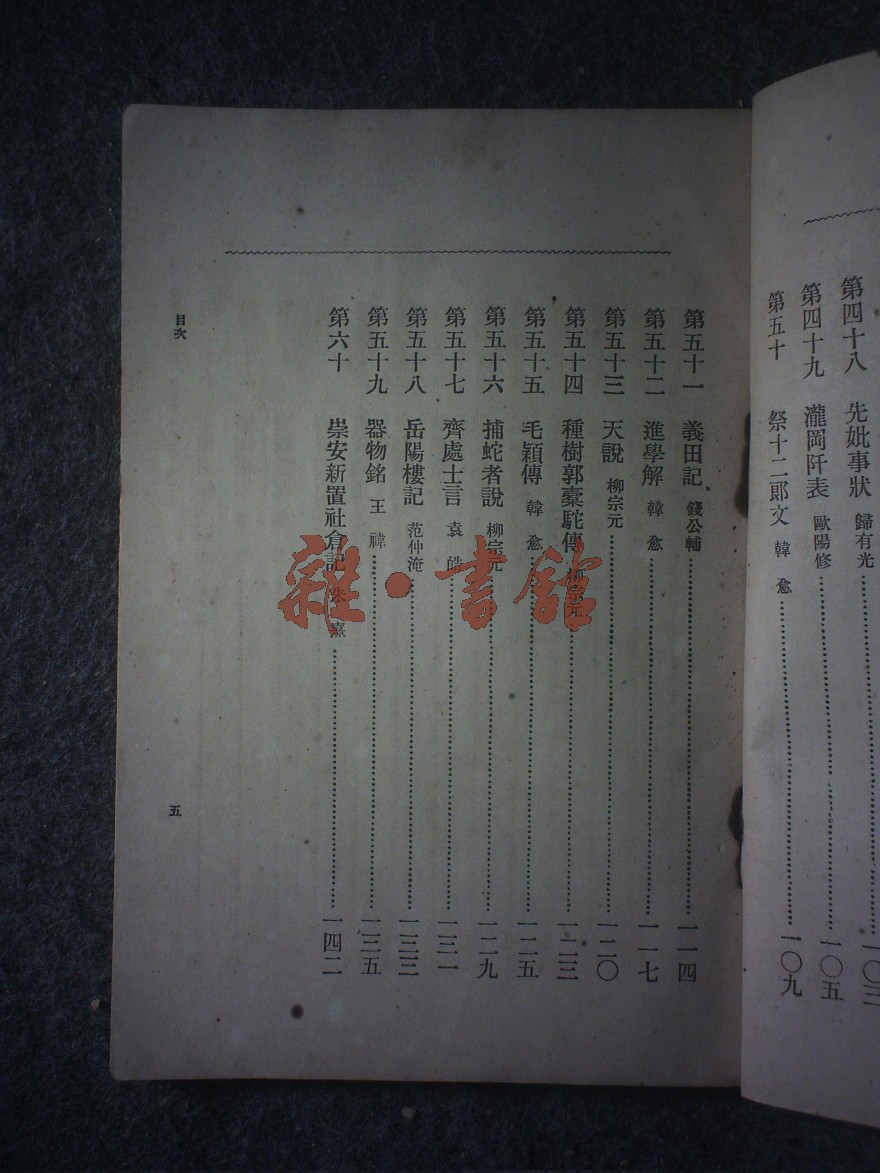 第四十八 先妣事狀 歸有光……一〇三
第四十九 瀧岡阡表 歐陽修……一〇五
第五十 祭十二郞文 韓愈……一〇九
第五十一 義田記 錢公輔……一一四
第五十二 進學解 韓愈……一一七
第五十三 天說 柳宗元……一二〇
第五十四 種樹郭橐駝傳 柳宗元……一二三
第五十五 毛穎傳 韓愈……一二五
第五十六 捕蛇者說 柳宗元……一二九
第五十七 齊處士言 袁皓……一三一
第五十八 岳陽樓記 范仲淹……一三三
第五十九 器物銘 王禕……一三五
第六十 崇安新置社倉記 朱熹……一四二
目次
五
雜·書館